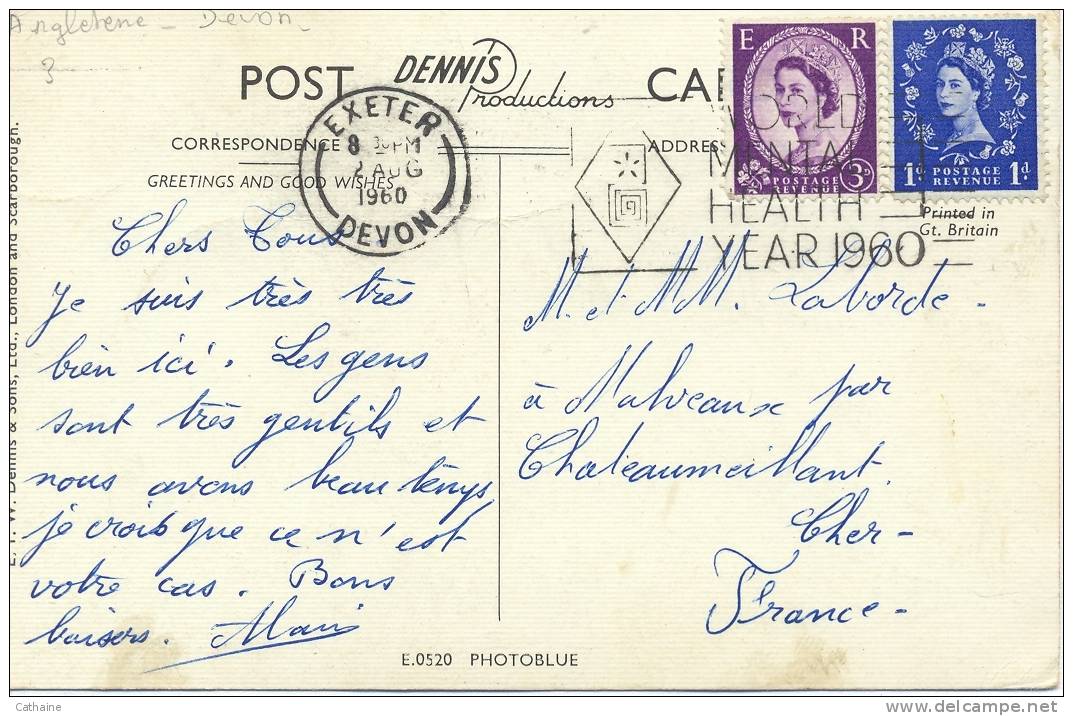 Angleterre - Devon
3
POST CA
DENNIS
Productions
CORRESPONDENCE
ADDRESS
GREETINGS AND GOOD WISHES
EXETER
8 30 PM
2 AUG
1960
DEVON
WORLD
MENTAL
HEALTH
YEAR 1960
E R
POSTAGE
REVENUE
3D
1D POSTAGE 1D
REVENUE
Printed in
Gt. Britain
Chers Tous
Je suis très très
bien ici. Les gens
sont très gentils et
nous avons beau temps,
je crois que ce n'est
votre cas. Bons
baisers. Alain
M. et MM. Laborde -
à Malveaux par
Chateaumeillant.
Cher -
France -
W. Dennis & Sons, Ltd., London and Scarborough.
E.0520 PHOTOBLUE
Cathaine
delcampe.net